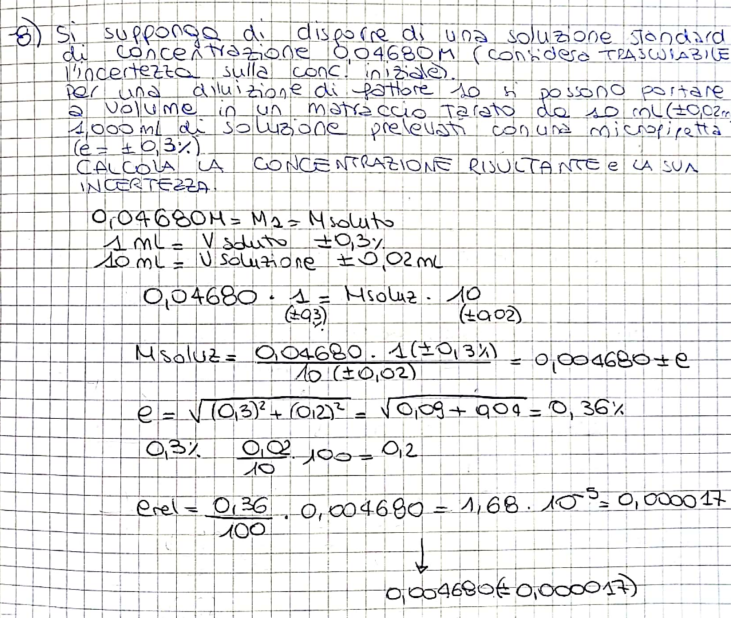 8) Si supponga di disporre di una soluzione standard
di concentrazione 0,04680M (considera TRASCURABILE
l'incertezza sulla conc. iniziale).
Per una diluizione di fattore 10 si possono portare
a volume in un matraccio tarato da 10 mL (±0,02m
1,000 mL di soluzione prelevati con una micropipetta
(e = ±0,3%)
CALCOLA LA CONCENTRAZIONE RISULTANTE e LA SUA
INCERTEZZA.
0,04680M = M1 = Msoluto
1 mL = V soluto ±0,3%
10 mL = V soluzione ±0,02 mL
0,04680 · 1 = Msoluz · 10
(±0,3) (±0,02)
Msoluz = 0,04680 · 1(±0,3%) / 10 (±0,02) = 0,004680 ± e
e = √(0,3)² + (0,2)² = √0,09 + 0,04 = 0,36%
0,3% 0,02/10 · 100 = 0,2
erel = 0,36/100 · 0,004680 = 1,68 · 10⁻⁵ = 0,000017
↓
0,004680(± 0,000017)